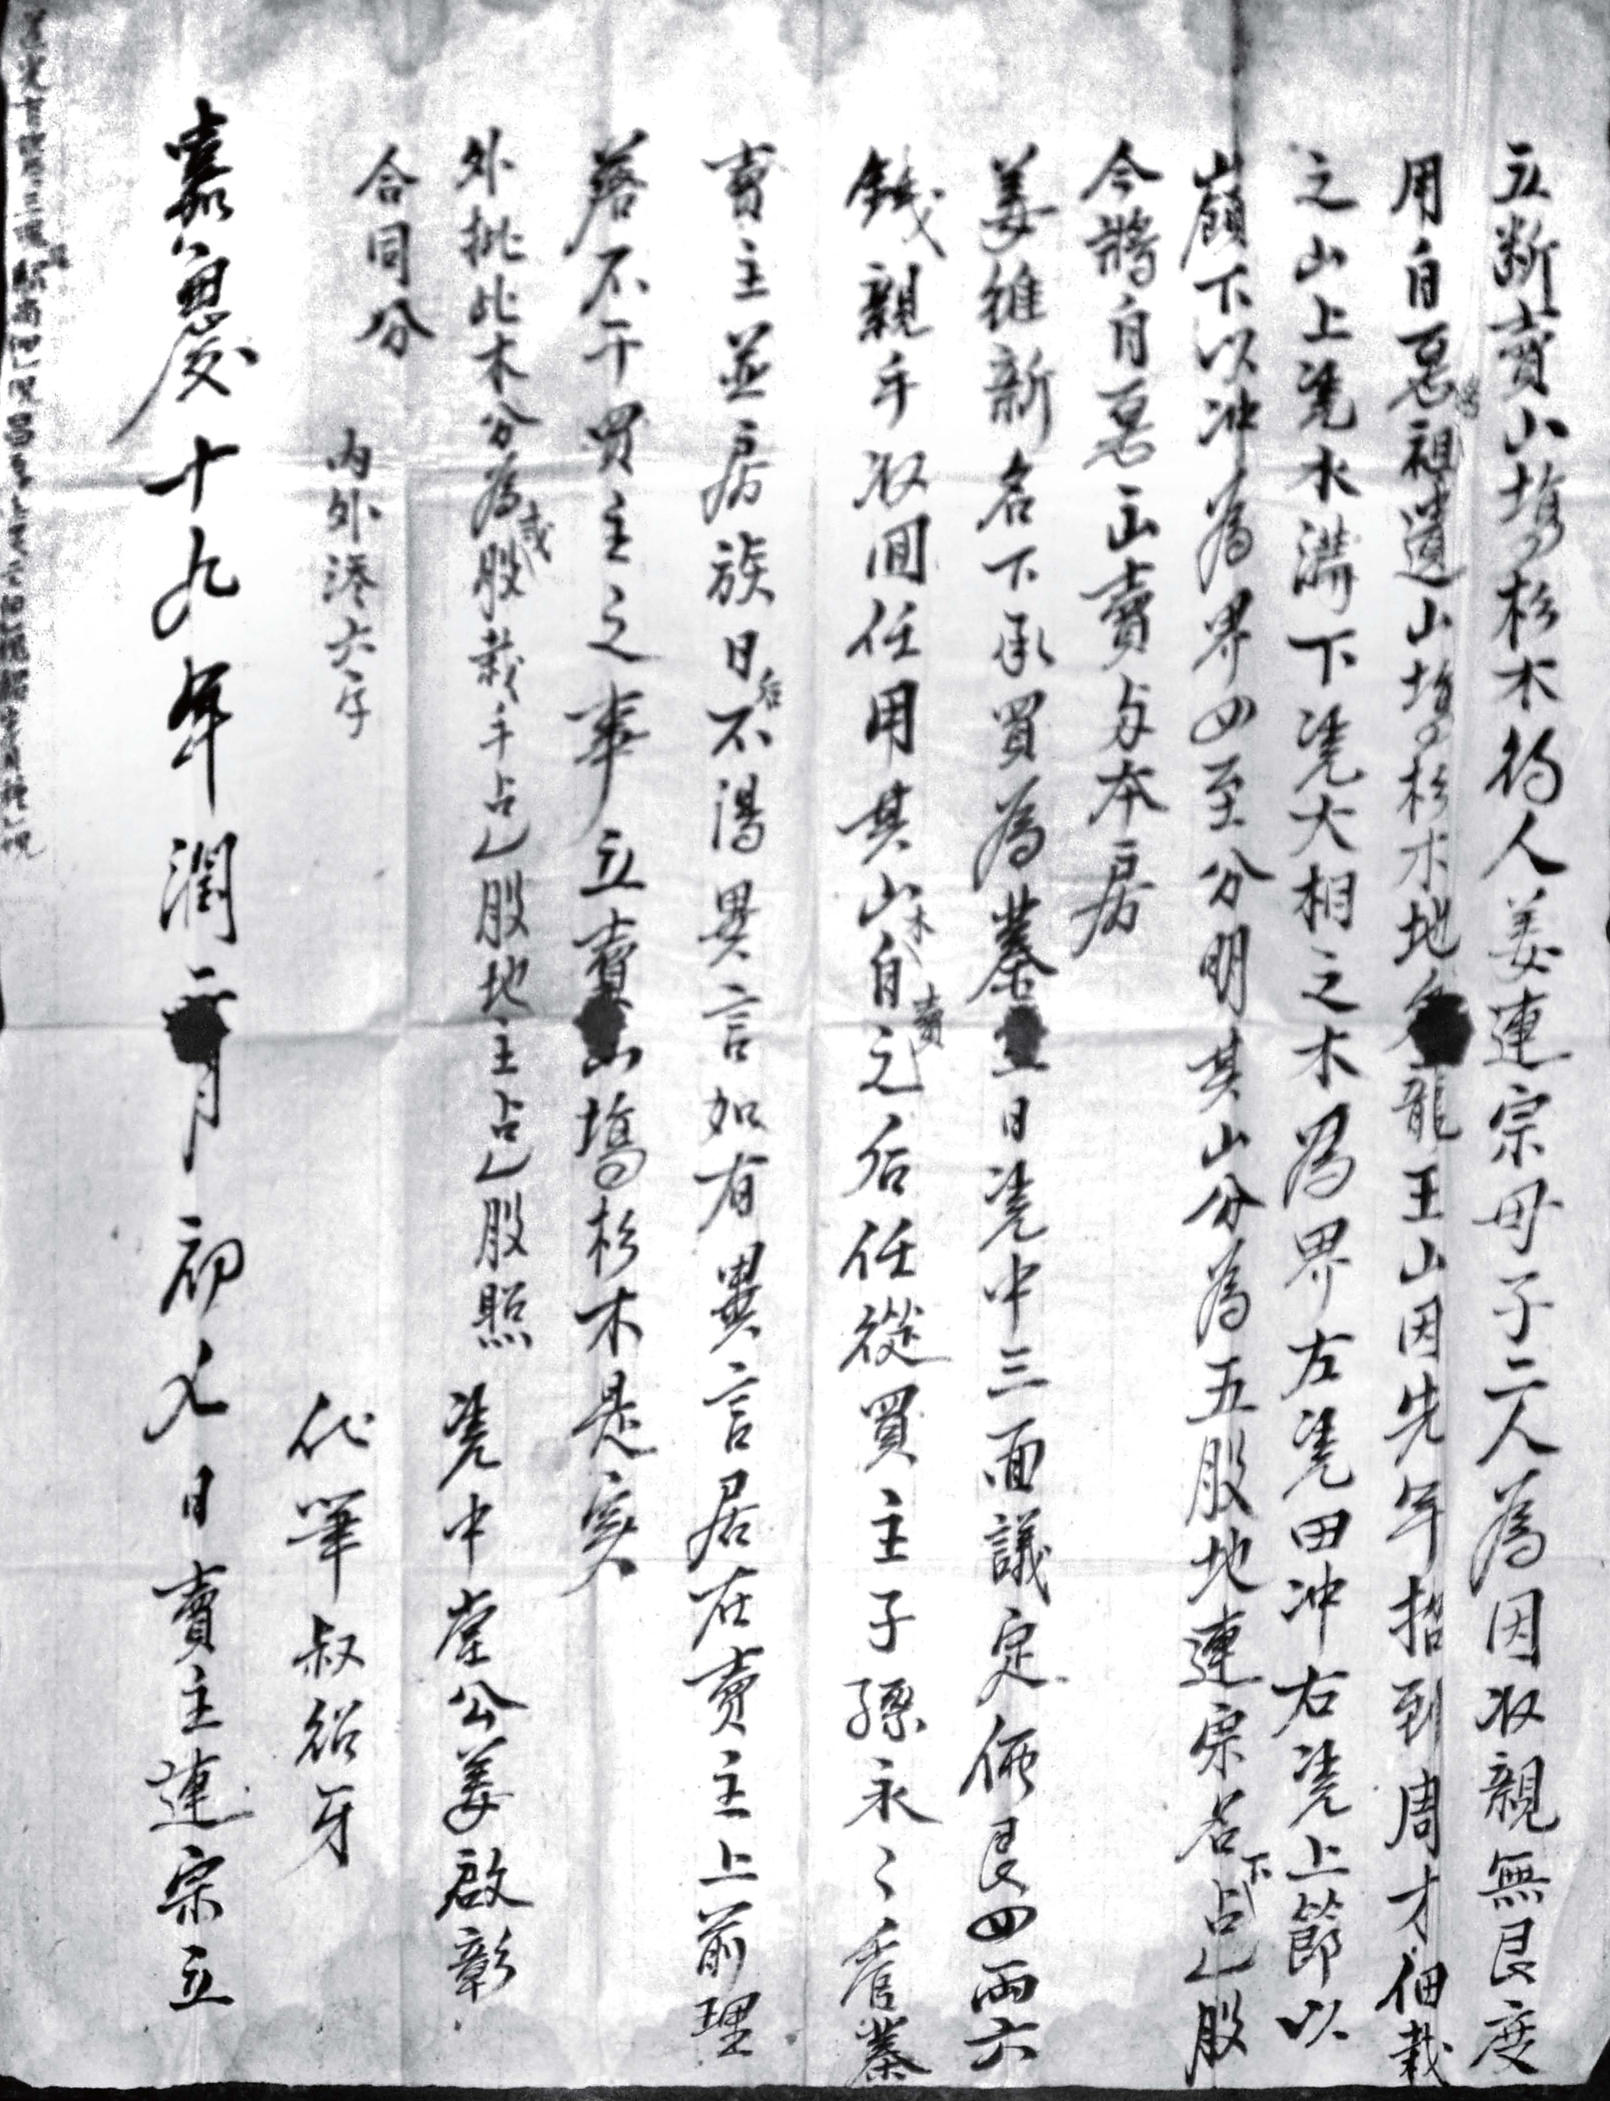 立断賣山塲杉木約人姜連宗母子二人為因収親無艮度
用自愿將祖遺山塲杉木地名龍王山因先年招到周才佃栽
之山上凴水溝下凴大相之木為界左凴田冲右凴上節以
嶺下以冲為界四至分明其山分為五股地連宗名下占乚股
今將自愿出賣与本房
姜維新名下承買為業當日凴中三面議定価艮四両六
錢親手収回任用其山木自賣之后任從買主子孫永〻管業
賣主並房族日后不淂異言如有異言居在賣主上前理
落不干買主之事立賣山塲杉木是實
外批此木分為弍股栽手占乚股地主占乚股照
合同分
內外添六字
凴中堂公姜啟彰
代筆叔紹牙
嘉慶十九年潤二月初九日賣主連宗立